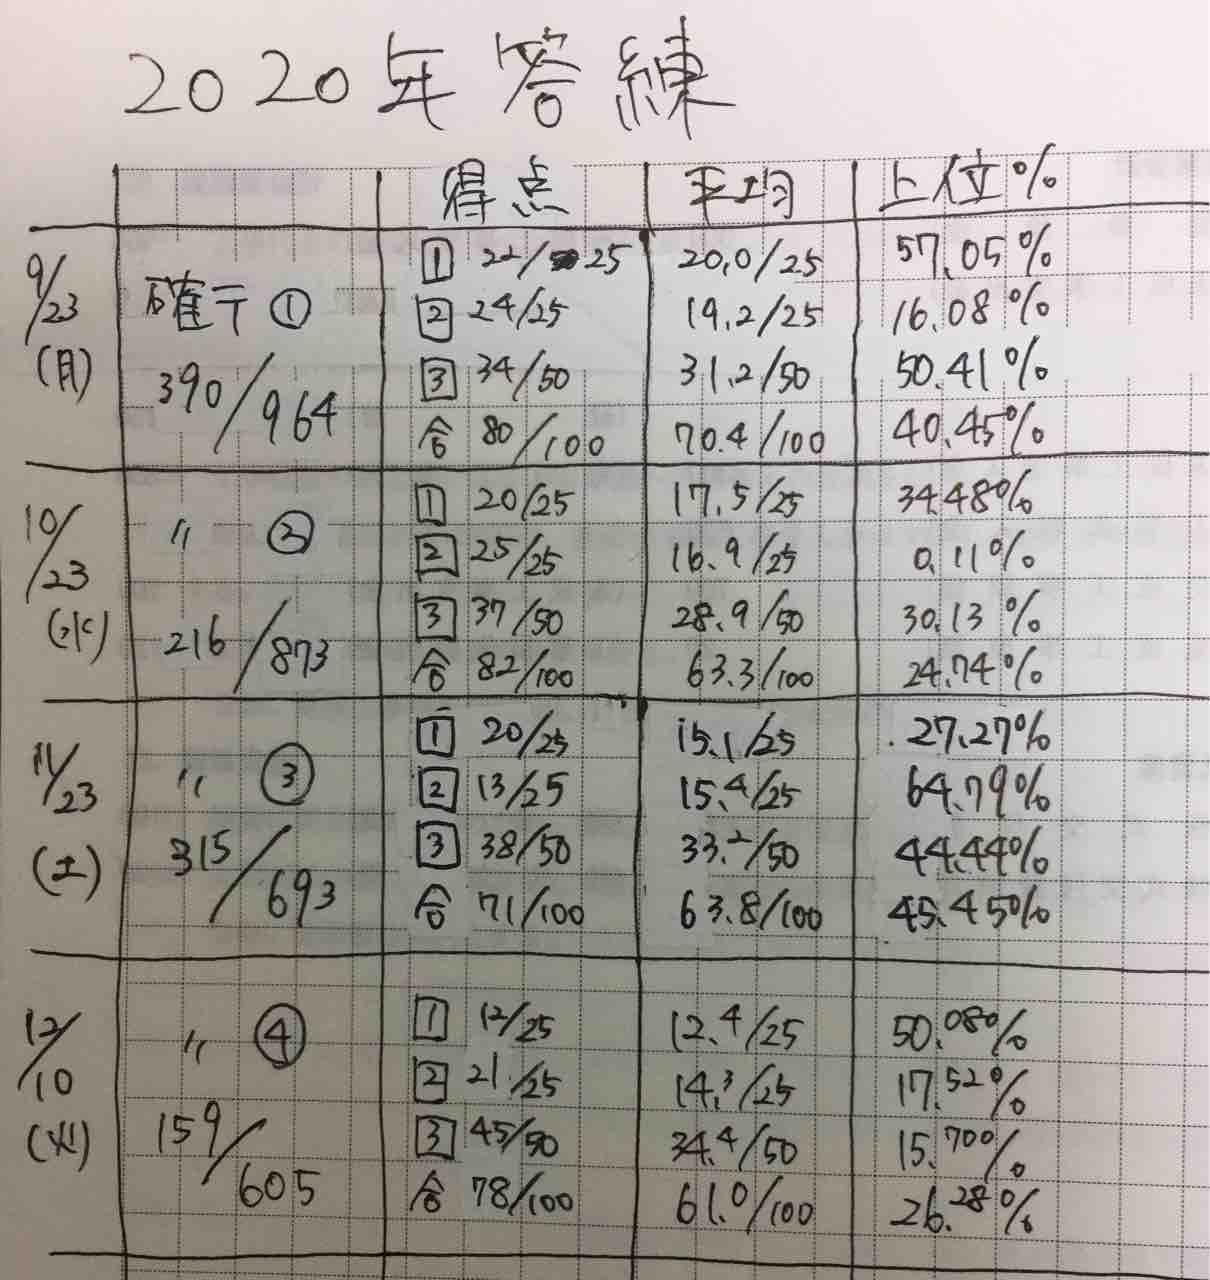 2020年答練
得点 平均 上位%
9/23 (月) 確テ ① 390/964
1 22/25 20.0/25 57.05%
2 24/25 19.2/25 16.08%
3 34/50 31.2/50 50.41%
合 80/100 70.4/100 40.45%
10/23 (水) 〃 ② 216/873
1 20/25 17.5/25 34.48%
2 25/25 16.9/25 0.11%
3 37/50 28.9/50 30.13%
合 82/100 63.3/100 24.74%
11/23 (土) 〃 ③ 315/693
1 20/25 15.1/25 27.27%
2 13/25 15.4/25 64.79%
3 38/50 33.2/50 44.44%
合 71/100 63.8/100 45.45%
12/10 (火) 〃 ④ 159/605
1 12/25 12.4/25 50.08%
2 21/25 14.3/25 17.52%
3 45/50 34.4/50 15.70%
合 78/100 61.0/100 26.28%